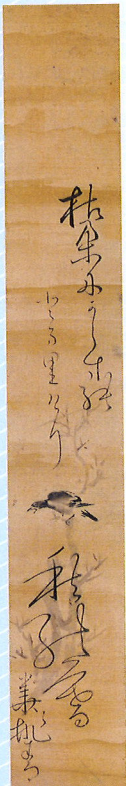 枯朶にからすの
とまりけり
秋の暮
華桃青